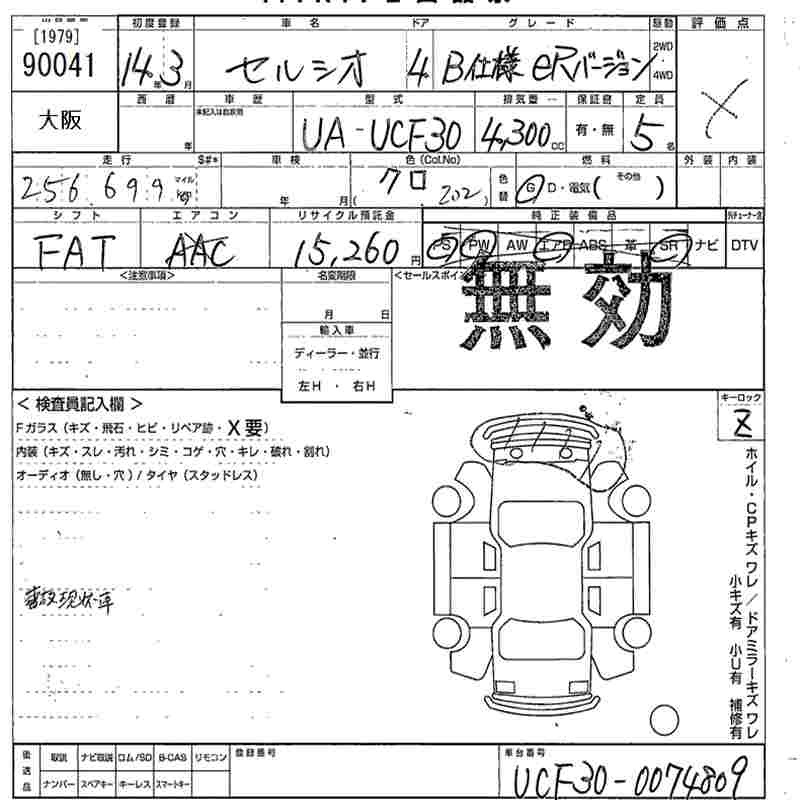 [1979] 初度登録 車名 ドア グレード 駆動 評価点
90041 14年3月 セルシオ 4 B仕様 eRバージョン 2WD 4WD
大阪 西暦 車歴 型式 排気量 保証書 定員
年 未記入は自家用 UA-UCF30 4,300cc 有・無 5名
走行 $#* 車検 色(Col.No) 燃料 外装 内装
256,699 マイル km 年 月 クロ (202) 色替 G D・電気( その他 )
シフト エアコン リサイクル預託金 純正装備品
FAT AAC 15,260円 PS PW AW エアB ABS 革 SR ナビ DTV
<注意事項> 名変期限 <セールスポイ
月 日 無効
輸入車
ディーラー・並行
左H ・ 右H
< 検査員記入欄 > キーロック
Fガラス(キズ・飛石・ヒビ・リペア跡・X要) Z
内装(キズ・スレ・汚れ・シミ・コゲ・穴・キレ・破れ・割れ)
オーディオ(無し・穴)/タイヤ(スタッドレス)
事故現状車
ホイル・CPキズ ワレ/ドアミラーキズ ワレ
小キズ有 小U有 補修有
後送品 取説 ナビ取説 ロム/SD B-CAS リモコン 登録番号 車台番号
ナンバー スペアキー キーレス スマートキー UCF30-0074809